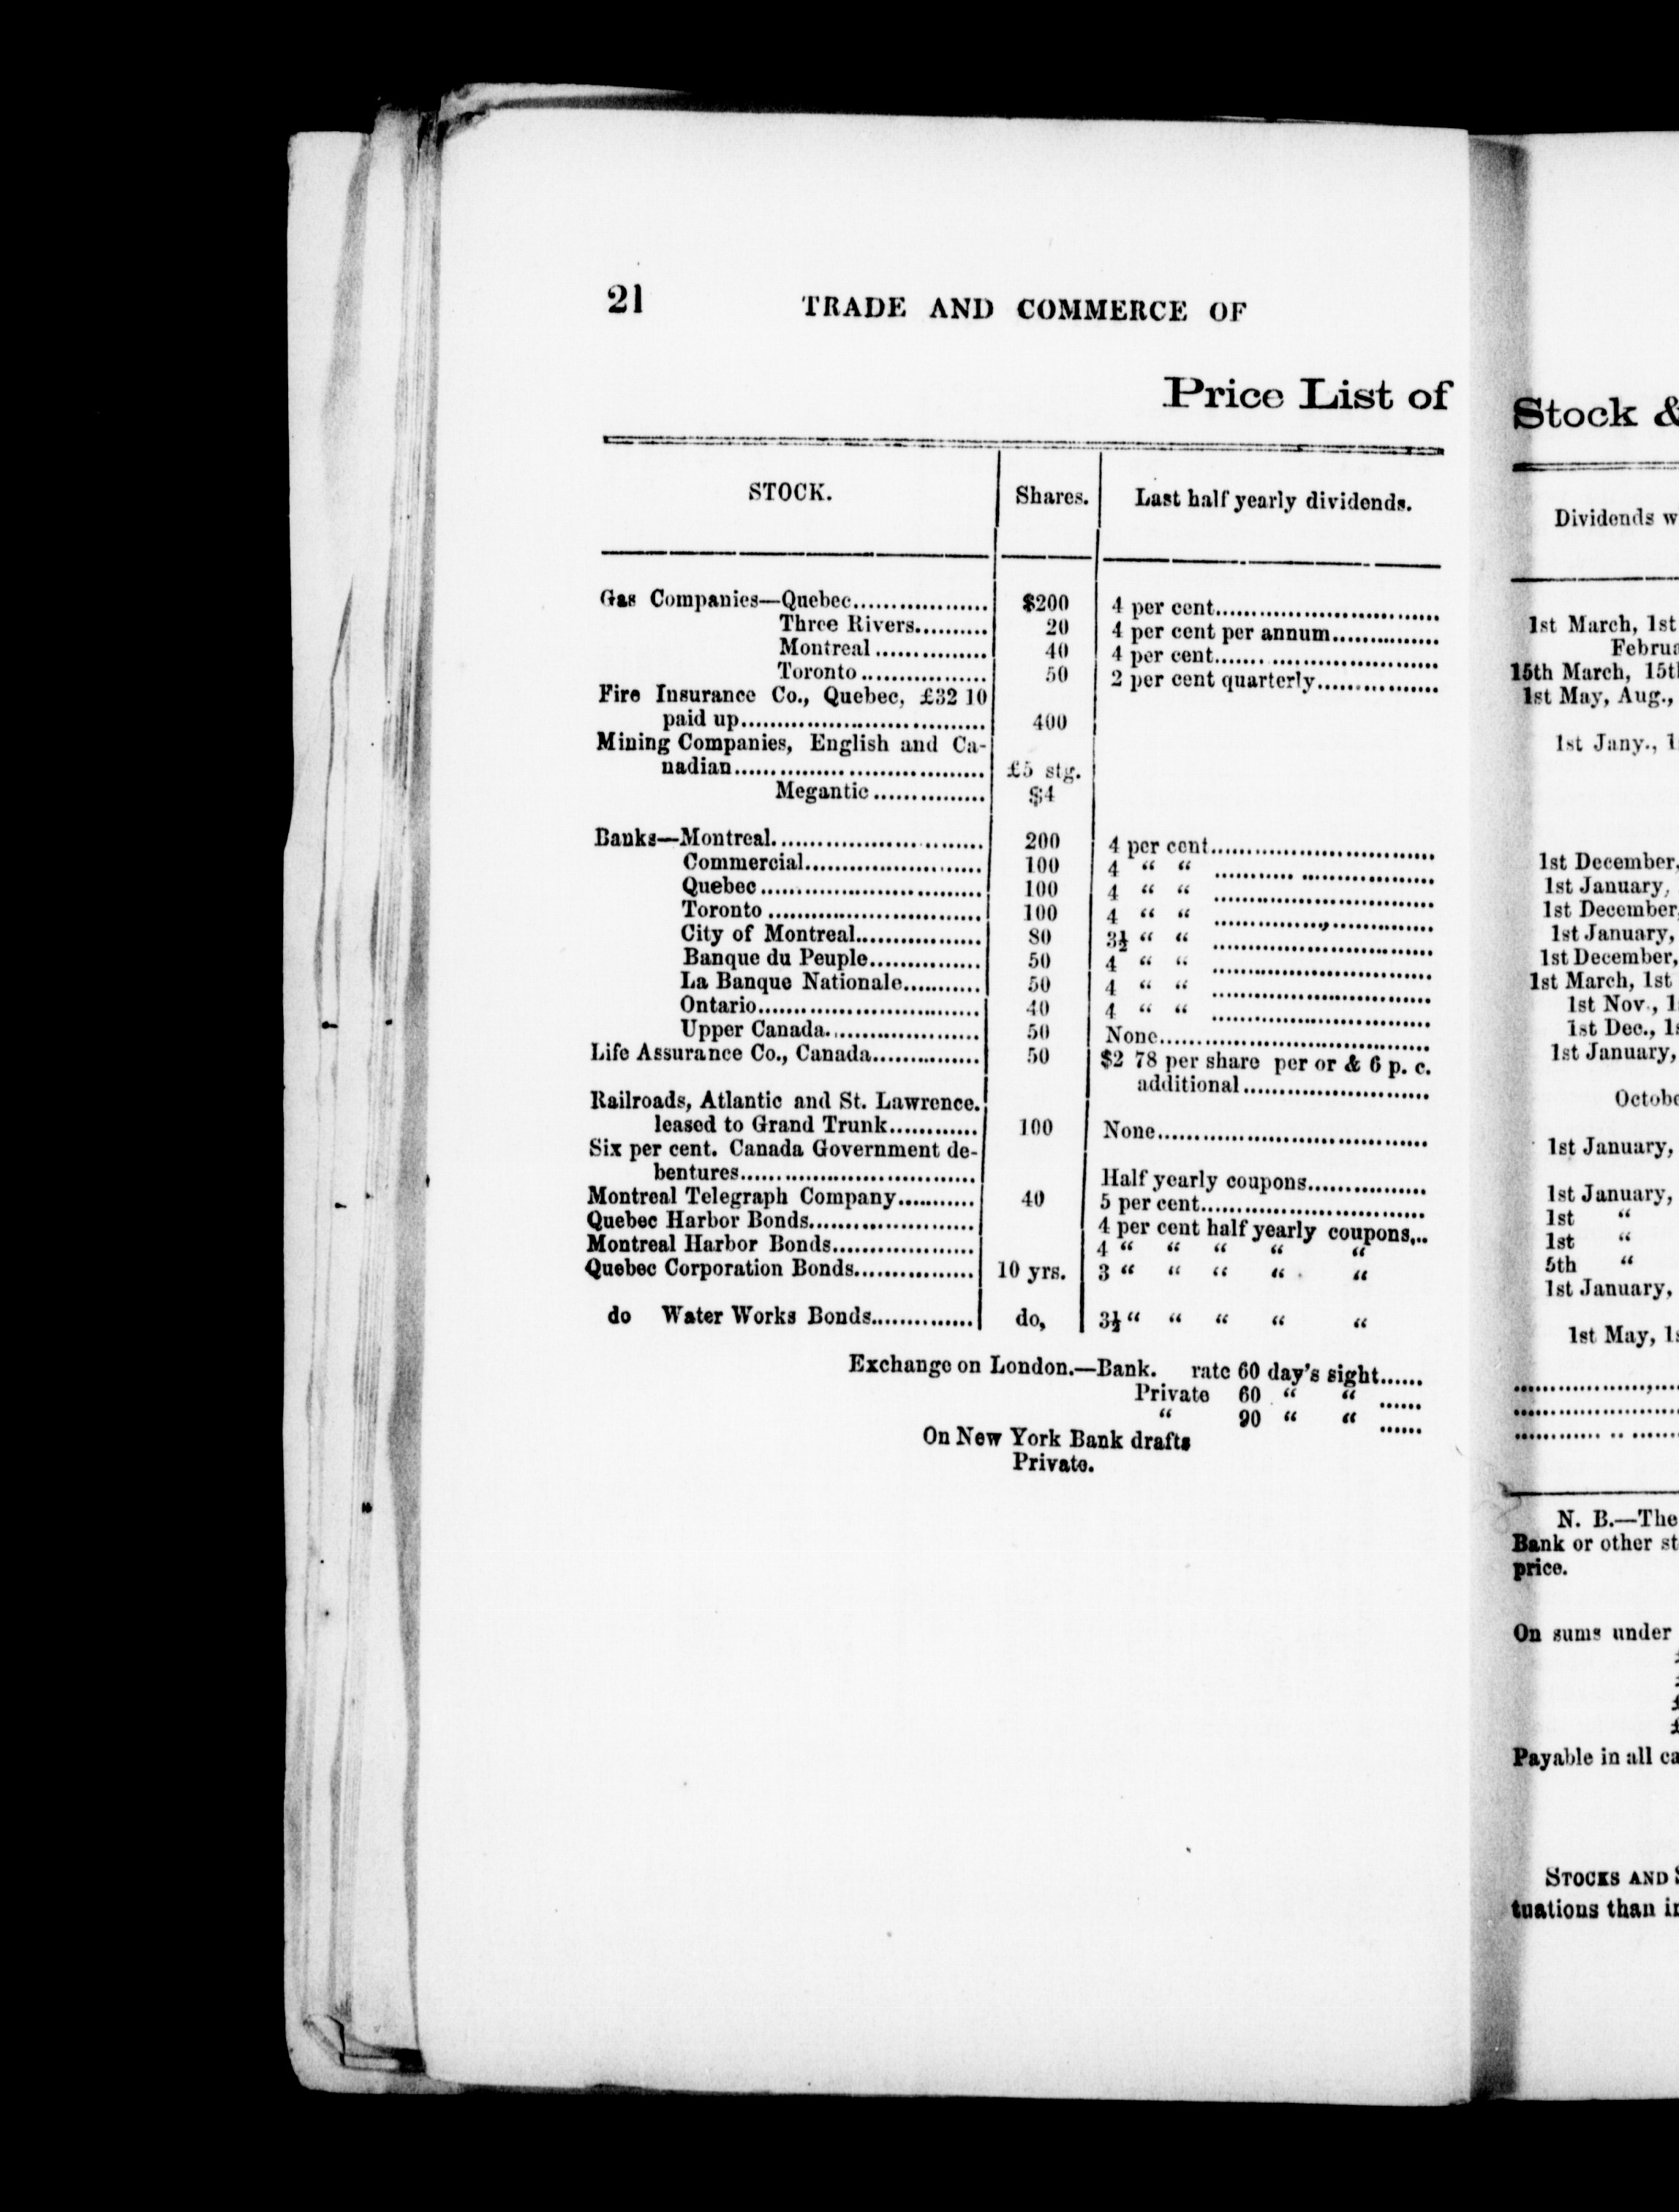 21 TRADE AND COMMERCE OF
Price List of
STOCK. Shares. Last half yearly dividends.
Gas Companies—Quebec.................. $200 4 per cent..............................
Three Rivers.......... 20 4 per cent per annum..............
Montreal............... 40 4 per cent..............................
Toronto................. 50 2 per cent quarterly................
Fire Insurance Co., Quebec, £32 10
paid up................................. 400
Mining Companies, English and Ca-
nadian................................. £5 stg.
Megantic............... $4
Banks—Montreal............................ 200 4 per cent..............................
Commercial....................... 100 4 “ “ .............................
Quebec............................. 100 4 “ “ .............................
Toronto............................ 100 4 “ “ .............................
City of Montreal................ 80 3½ “ “ .............................
Banque du Peuple............... 50 4 “ “ .............................
La Banque Nationale.......... 50 4 “ “ .............................
Ontario............................. 40 4 “ “ .............................
Upper Canada.................... 50 None....................................
Life Assurance Co., Canada.............. 50 $2 78 per share per or & 6 p. c.
additional.........................
Railroads, Atlantic and St. Lawrence.
leased to Grand Trunk............ 100 None....................................
Six per cent. Canada Government de-
bentures............................... Half yearly coupons................
Montreal Telegraph Company.......... 40 5 per cent..............................
Quebec Harbor Bonds...................... 4 per cent half yearly coupons,..
Montreal Harbor Bonds................... 4 “ “ “ “ “
Quebec Corporation Bonds................ 10 yrs. 3 “ “ “ “ “
do Water Works Bonds.............. do, 3½ “ “ “ “ “
Exchange on London.—Bank. rate 60 day's sight......
Private 60 “ “ ......
“ 90 “ “ ......
On New York Bank drafts
Private.
Stock &
Dividends
1st March, 1st
15th March,
1st May, Aug.,
1st Jany.,
1st December,
1st January,
1st December,
1st January,
1st December,
1st March, 1st
1st Nov.,
1st Dec.,
1st January,
1st January,
1st January,
1st “
1st “
5th “
1st January,
1st May,
N. B.—The
Bank or other
price.
On sums under
Payable in all
STOCKS AND
tuations than